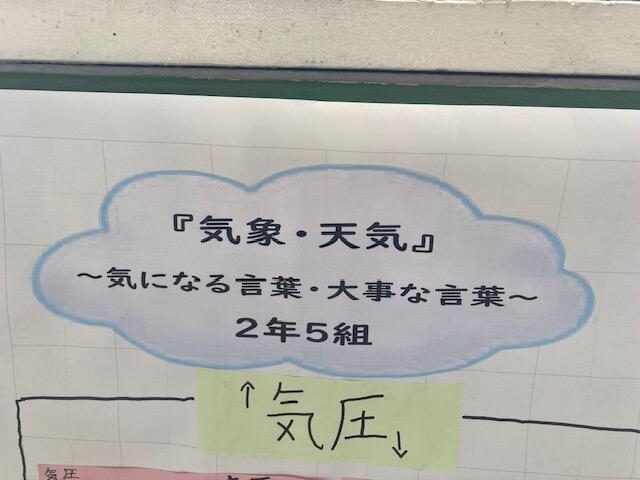 『気象・天気』
～気になる言葉・大事な言葉～
2年5組
↑気圧↓
気圧